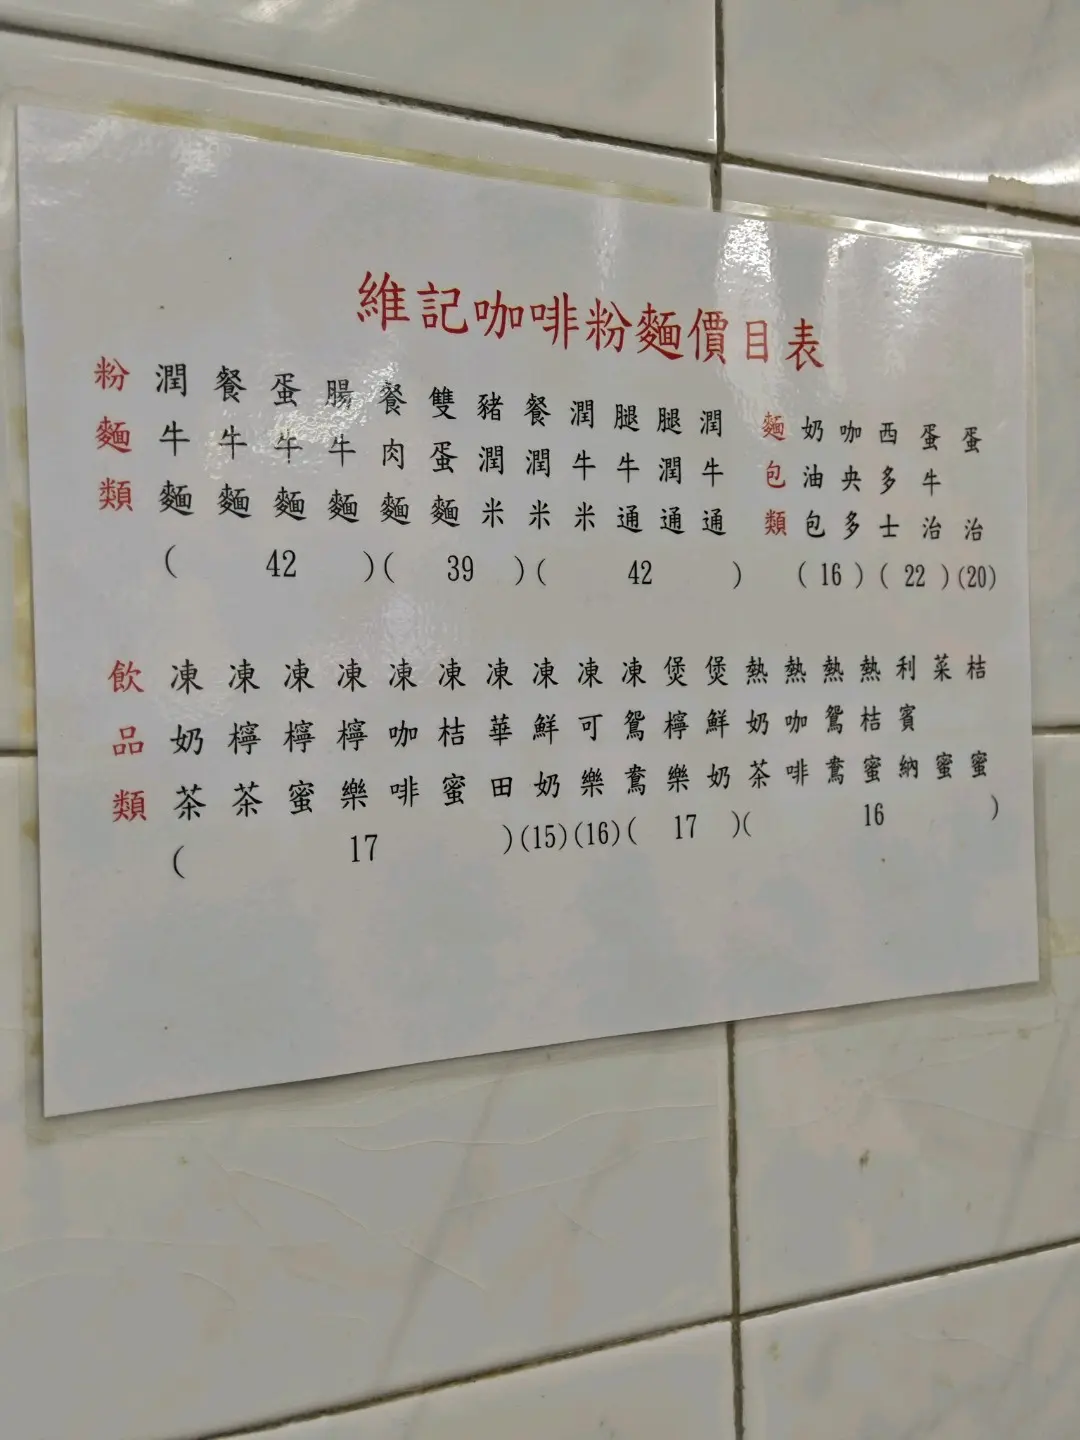 維記咖啡粉麵價目表
粉麵類
潤牛麵
餐牛麵
蛋牛麵
腸牛麵
餐肉麵
雙蛋麵
豬潤米
餐潤米
潤牛米
腿牛通
腿潤通
潤牛通
( 42 )( 39 )( 42 )
麵包類
奶油包
咖央多
西多士
蛋牛治
蛋治
( 16 )( 22 )(20)
飲品類
凍奶茶
凍檸茶
凍檸蜜
凍檸樂
凍咖啡
凍桔蜜
凍華田
凍鮮奶
凍可樂
凍鴛鴦
煲檸樂
煲鮮奶
熱奶茶
熱咖啡
熱鴛鴦
熱桔蜜
利賓納
菜蜜
桔蜜
( 17 )(15)(16)( 17 )( 16 )